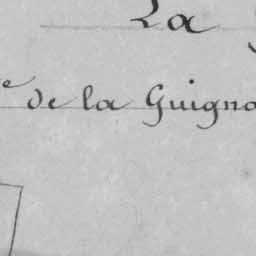 La
e de la Guigno